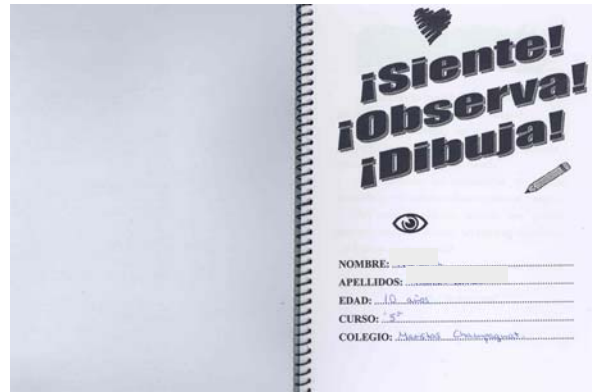 ¡Siente!
¡Observa!
¡Dibuja!
NOMBRE:
APELLIDOS:
EDAD: 10 años
CURSO: 5º
COLEGIO: Maristas Champagnat.